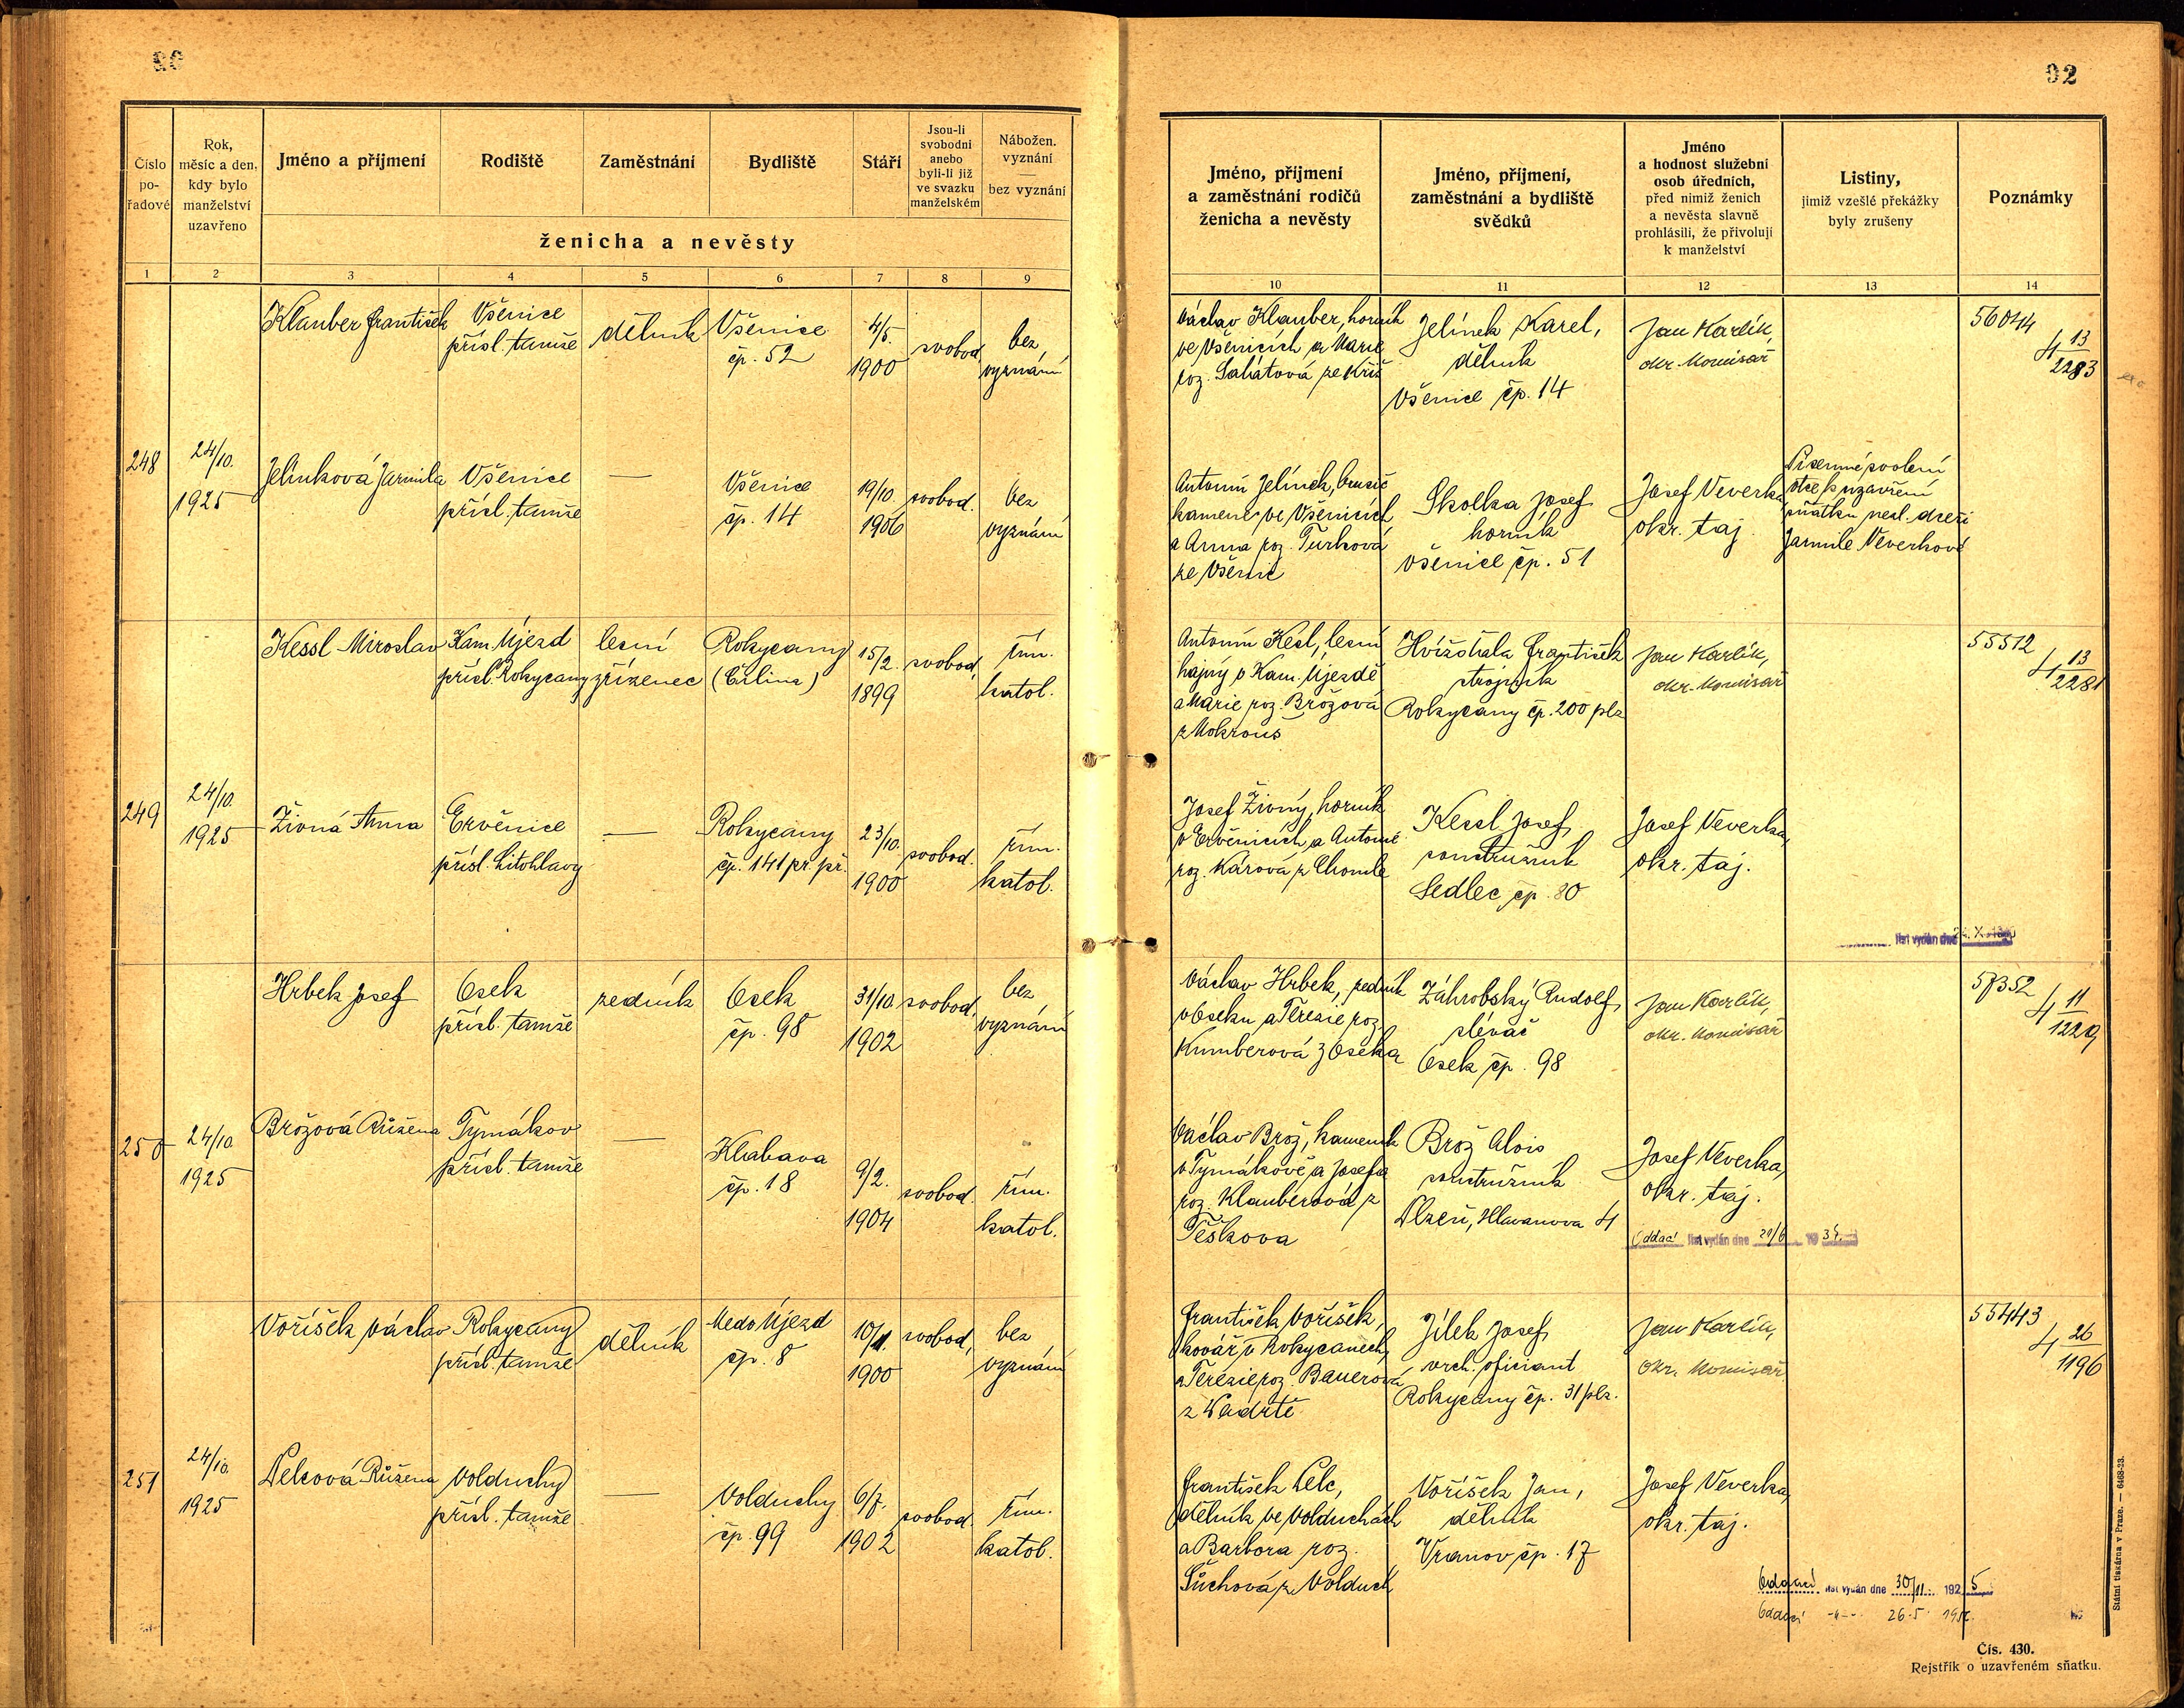 92
Číslo po-řadové
Rok, měsíc a den, kdy bylo manželství uzavřeno
Jméno a příjmení
Rodiště
Zaměstnání
Bydliště
Stáří
Jsou-li svobodni anebo byli-li již ve svazku manželském
Nábožen. vyznání — bez vyznání
ženicha a nevěsty
Jméno, příjmení a zaměstnání rodičů ženicha a nevěsty
Jméno, příjmení, zaměstnání a bydliště svědků
Jméno a hodnost služební osob úředních, před nimiž ženich a nevěsta slavně prohlásili, že přivolují k manželství
Listiny, jimiž vzešlé překážky byly zrušeny
Poznámky
1 2 3 4 5 6 7 8 9 10 11 12 13 14
248
24/10.
1925
Klauber František
Všenice
přísl. tamže
dělník
Všenice
čp. 52
4/5.
1900
svobod.
bez
vyznání
Václav Klauber, horník
ve Všenicích a Marie
roz.
Jelínek Karel,
dělník
Všenice čp. 14
Jan Karlík,
okr. komisař
56044
4 13/2283
Jelínková Jarmila
Všenice
přísl. tamže
—
Všenice
čp. 14
19/10.
1906
svobod.
bez
vyznání
Antonín Jelínek, brusič
kamene ve Všenicích
a Anna roz. Turková
ze Všenic
Skolka Josef
horník
Všenice čp. 51
Josef Veverka
okr. taj.
Písemné svolení
otce k uzavření
sňatku nezl. dceři
Jarmile Veverkové
249
24/10.
1925
Kessl Miroslav
Kam. Újezd
přísl. Rokycany
lesní
zřízenec
Rokycany
15/2.
1899
svobod.
řím.
katol.
Antonín Kesl, lesní
hajný v Kam. Újezdě
a Marie roz. Brožová
z Mokrouš
František
strojník
Rokycany čp. 200 plz
Jan Karlík,
okr. komisař
55512
4 13/2281
Živná Anna
Ervěnice
přísl. Litohlavy
—
Rokycany
čp. 141 pr. př.
23/10.
1900
svobod.
řím.
katol.
Josef Živný, horník
v Ervěnicích a Antonie
roz. Kárová z Chomle
Kessl Josef
soustružník
Sedlec čp. 80
Josef Veverka,
okr. taj.
list vydán dne
250
24/10.
1925
Hrbek Josef
Osek
přísl. tamže
zedník
Osek
čp. 98
31/10.
1902
svobod.
bez
vyznání
Václav Hrbek, zedník
v Oseku a Terezie roz.
Kumberová z Oseka
Záhrobský Rudolf,
slévač
Osek čp. 98
Jan Karlík,
okr. komisař
57352
4 11/1229
Brožová Růžena
Tymákov
přísl. tamže
—
Klabava
čp. 18
9/2.
1904
svobod.
řím.
katol.
Václav Brož, kameník
v Tymákově a Josefa
roz. Klauberová z
Těškova
Brož Alois
soustružník
Plzeň, Hlavanova 4
Josef Veverka,
okr. taj.
Oddací list vydán dne
251
24/10.
1925
Voříšek Václav
Rokycany
přísl. tamže
dělník
Medo Újezd
čp. 8
10/11.
1900
svobod.
bez
vyznání
František Voříšek,
kovář v Rokycanech,
a Terezie roz. Bauerová
z Padrtě
Jílek Josef
vrch. oficiant
Rokycany čp. 31 plz.
Jan Karlík,
okr. komisař
55443
4 26/1196
Pelcová Růžena
Volduchy
přísl. tamže
—
Volduchy
čp. 99
6/7.
1902
svobod.
řím.
katol.
František Pelc,
dělník ve Volduchách
a Barbora roz.
Šůchová z Volduch
Voříšek Jan,
dělník
Vranov čp. 17
Josef Veverka,
okr. taj.
Oddací list vydán dne 30/11 1925
Oddací -"- 26.5
Státní tiskárna v Praze. — 6468-23.
Čís. 430.
Rejstřík o uzavřeném sňatku.